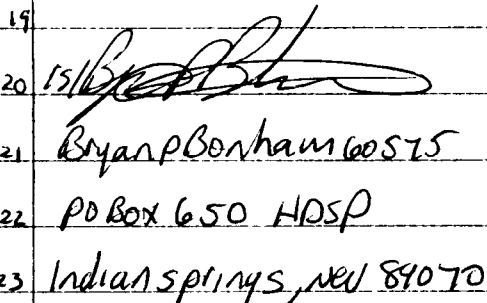 19
20 /s/
21 Bryan P Bonham 60575
22 PO BOX 650 HDSP
23 Indian springs, Nev 89070